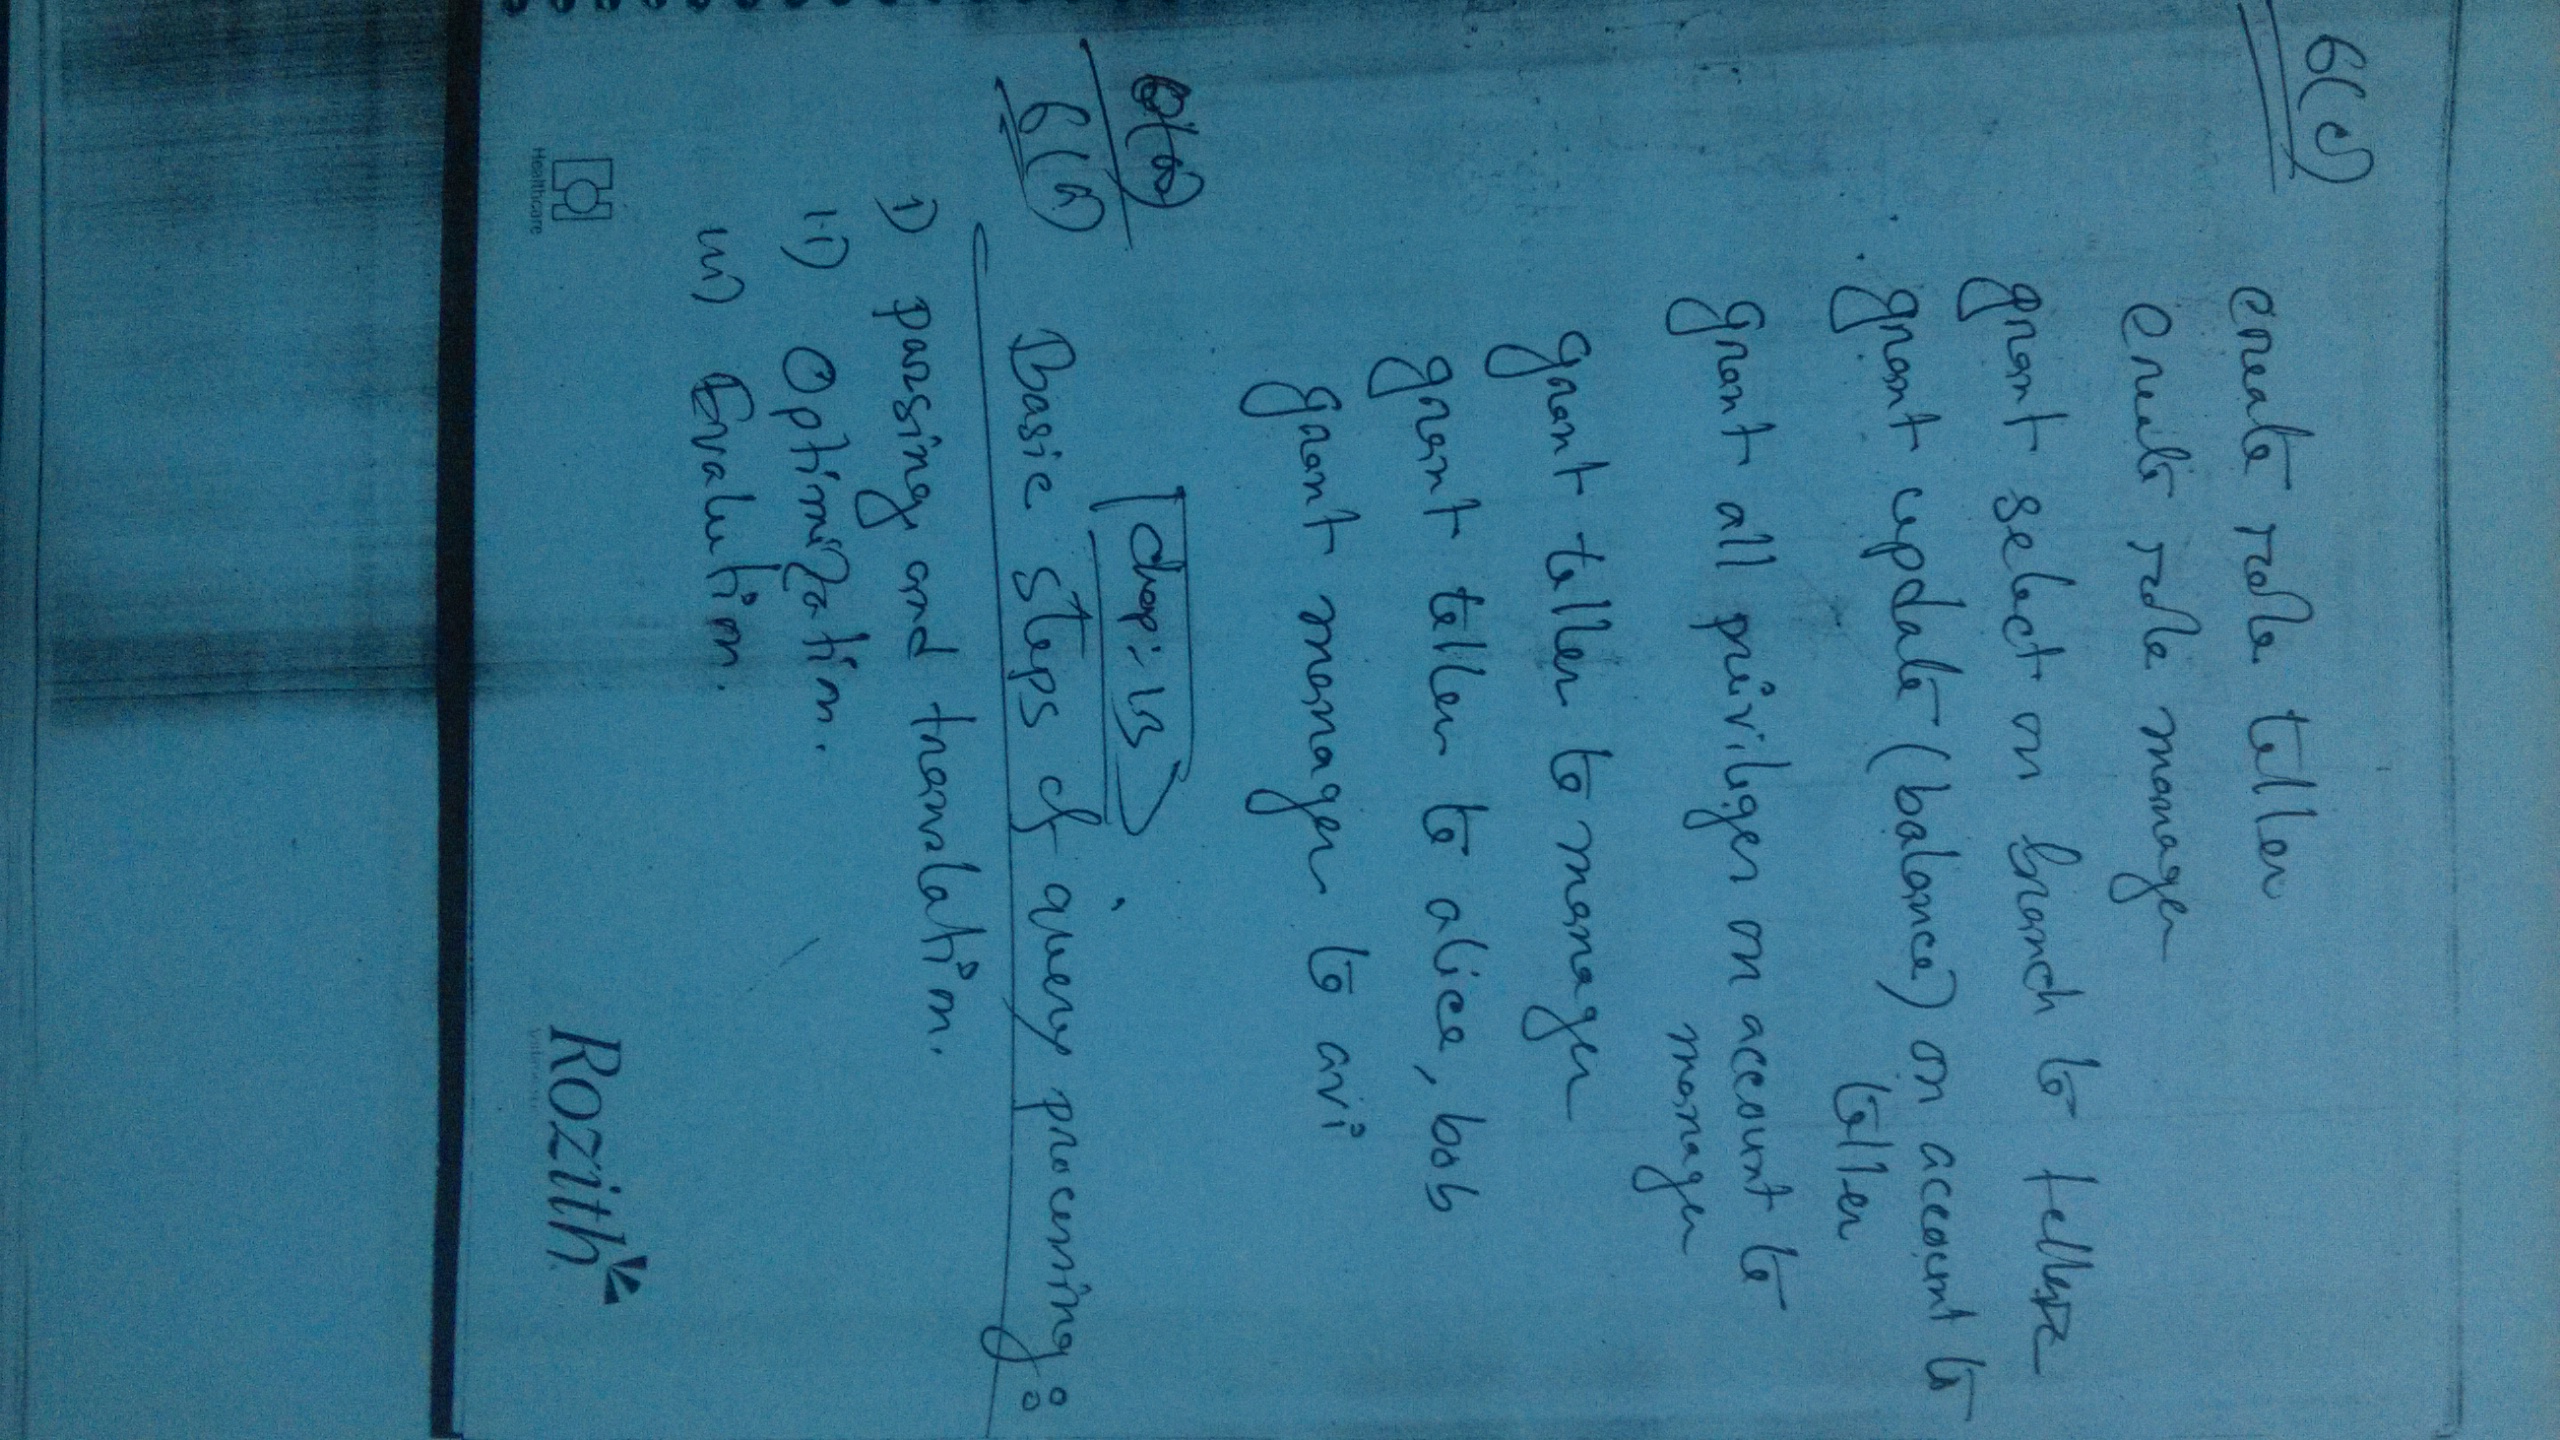 6(c)
create role teller
create role manager
grant select on branch to teller
grant update (balance) on account to
teller
grant all privileges on account to
manager
grant teller to manager
grant teller to alice, bob
grant manager to avi
chap: 13
6(a) Basic steps of query processing:
i) parsing and translation.
ii) Optimization.
iii) Evalution.
Healthcare
Rozith